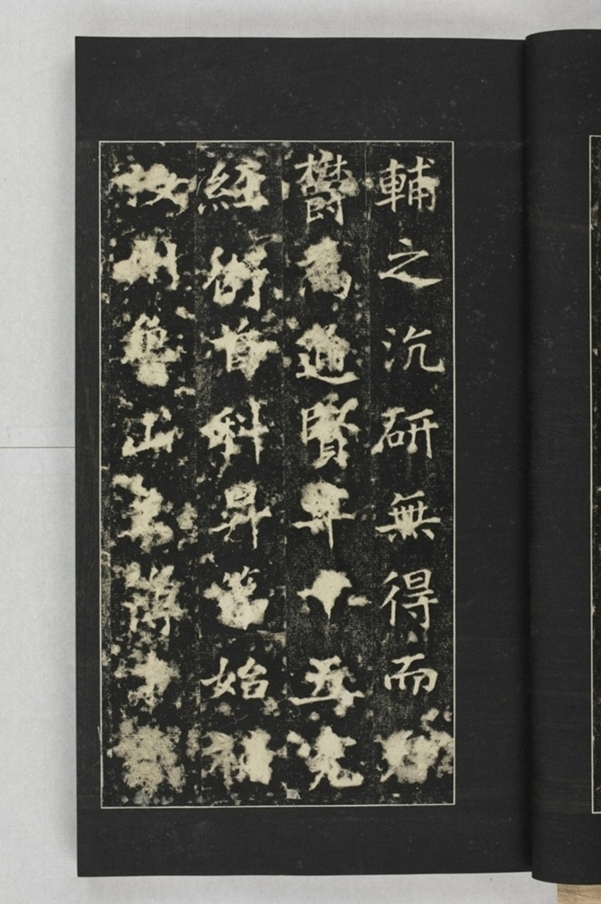 輔之沉研無得而
欝為通賢年十五充
經術首科昇第始
汝州魯山